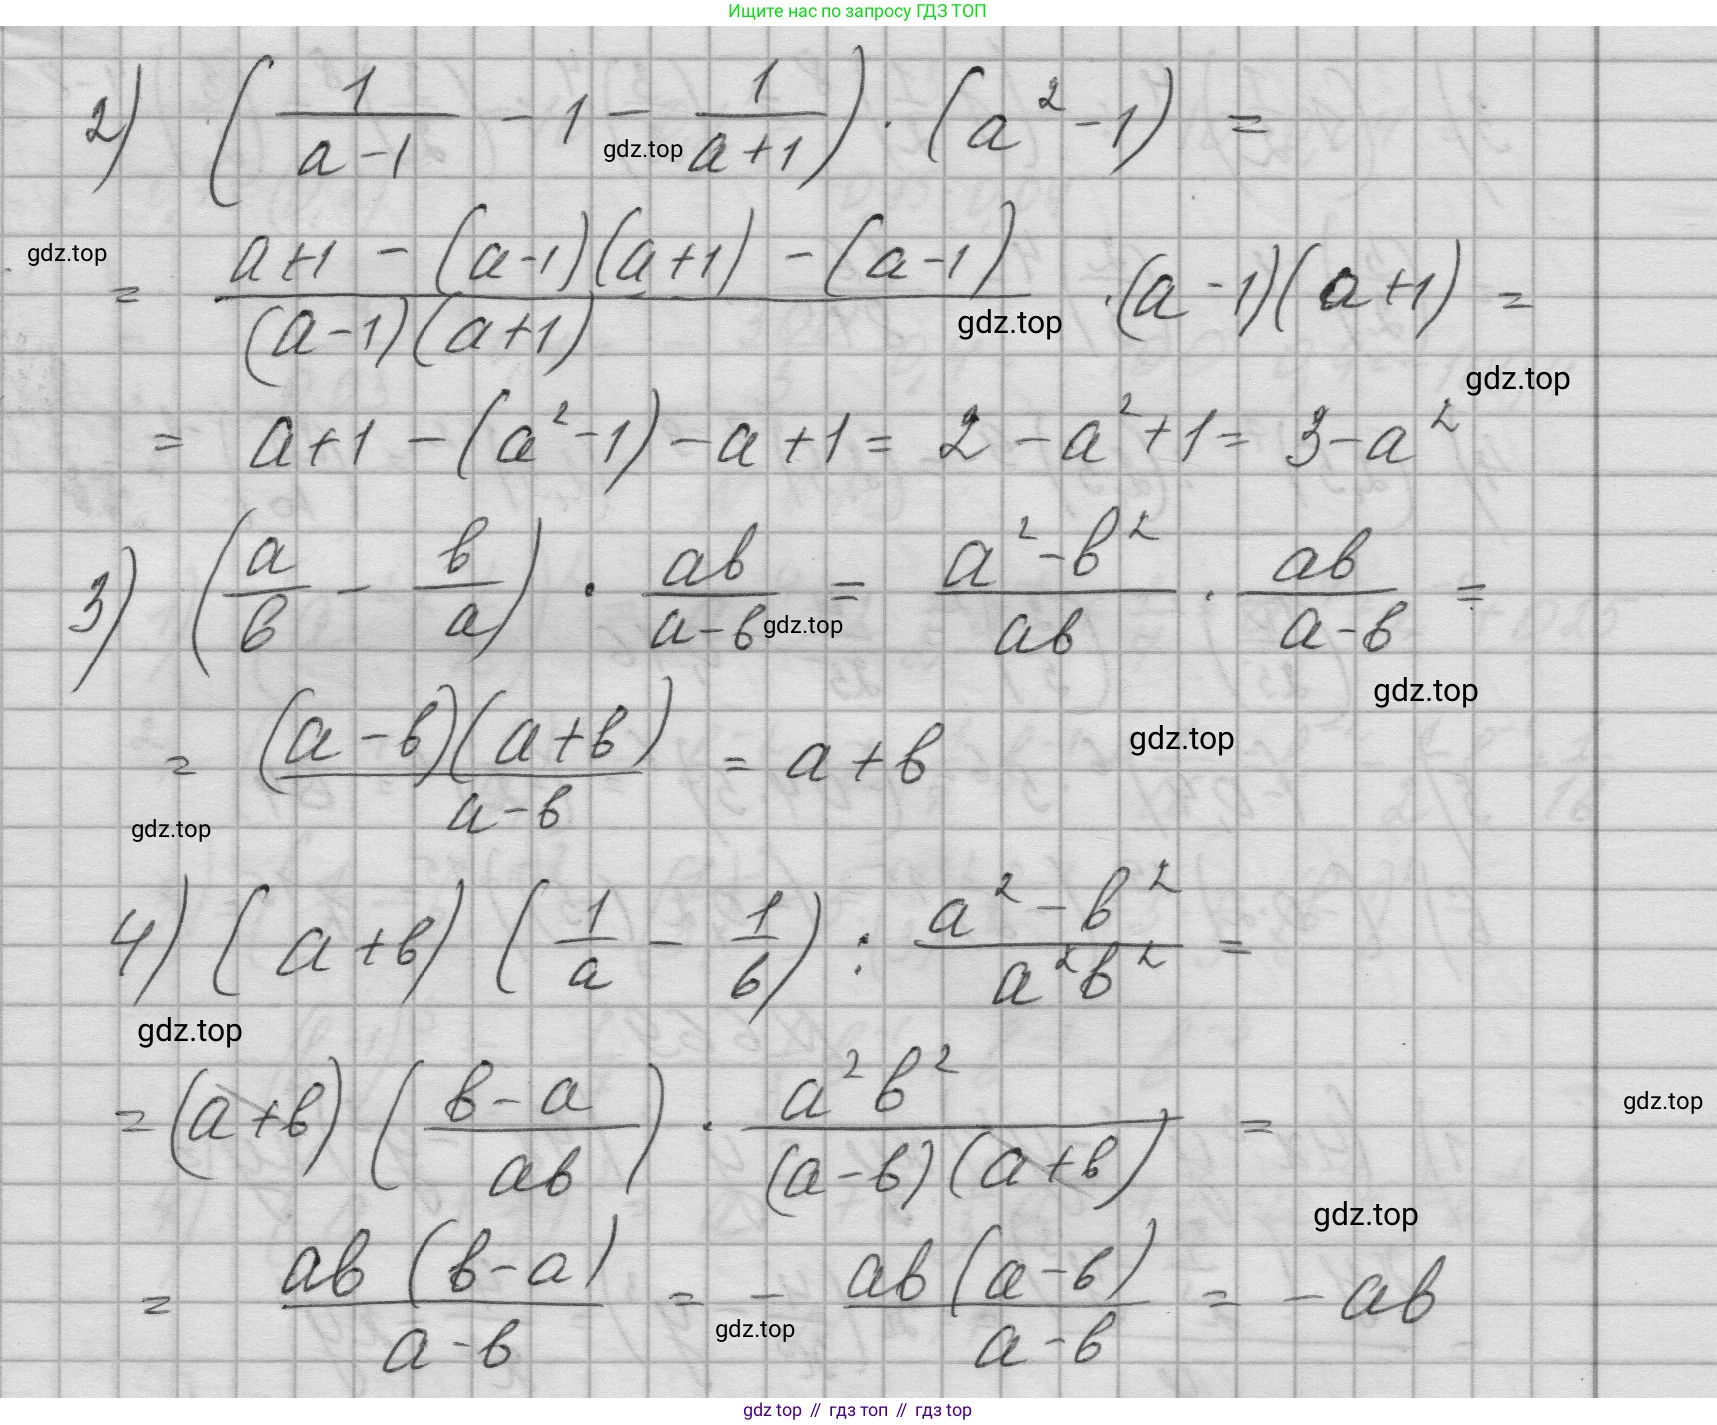 Ищите нас по запросу ГДЗ ТОП
2) (1/(a-1) - 1 - 1/(a+1)) · (a² - 1) =
gdz.top
gdz.top
= (a+1 - (a-1)(a+1) - (a-1))/((a-1)(a+1)) · (a-1)(a+1) =
gdz.top
gdz.top
= a+1 - (a²-1) - a + 1 = 2 - a² + 1 = 3 - a²
3) (a/в - в/a) · aв/(a-в) = (a² - в²)/aв · aв/(a-в) =
gdz.top
gdz.top
= (a-в)(a+в)/(a-в) = a + в
gdz.top
gdz.top
4) (a+в) (1/a - 1/в) : (a² - в²)/(a²в²) =
gdz.top
= (a+в) ((в-a)/aв) · a²в²/((a-в)(a+в)) =
gdz.top
gdz.top
= aв(в-a)/(a-в) = - aв(a-в)/(a-в) = - aв
gdz.top
gdz top // гдз топ // гдз top